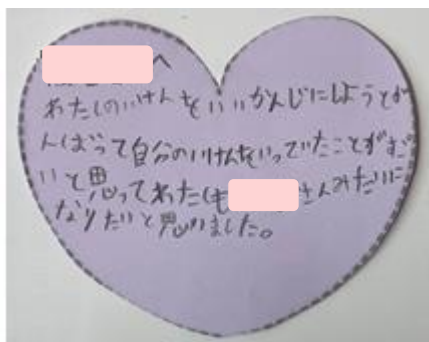 へ
わたしのいけんをいいかんじにしようとが
んばって自分のいけんをいっていたことがすご
いと思ってわたしも さんみたいに
なりたいと思いました。